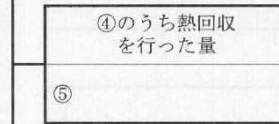 ④のうち熱回収
を行った量
⑤